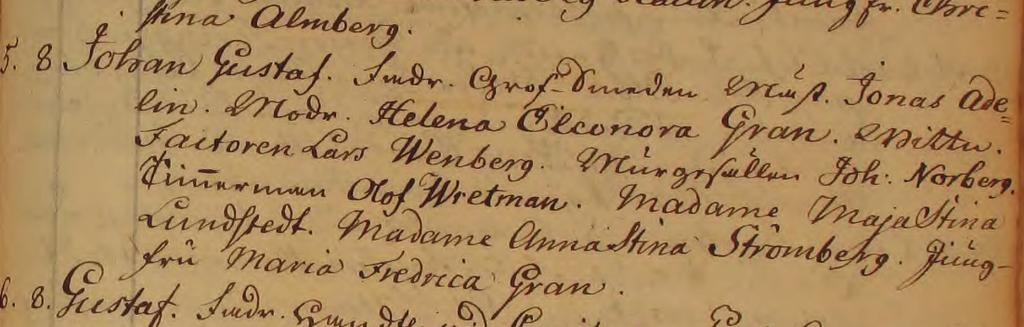 stina Almberg. Jungfr. Chri=
5. 8 Johan Gustaf. Fadr. Grof-Smeden Mäst. Jonas Ade=
lin. Modr. Helena Eleonora Gran. Wittn.
Factoren Lars Wenberg. Murgesällen Joh: Norberg.
Timmerman Olof Wretman. Madame Maja Stina
Lundstedt. Madame Anna Stina Strömberg. Jung-
fru Maria Fredrica Gran.
6. 8. Gustaf. Fadr.